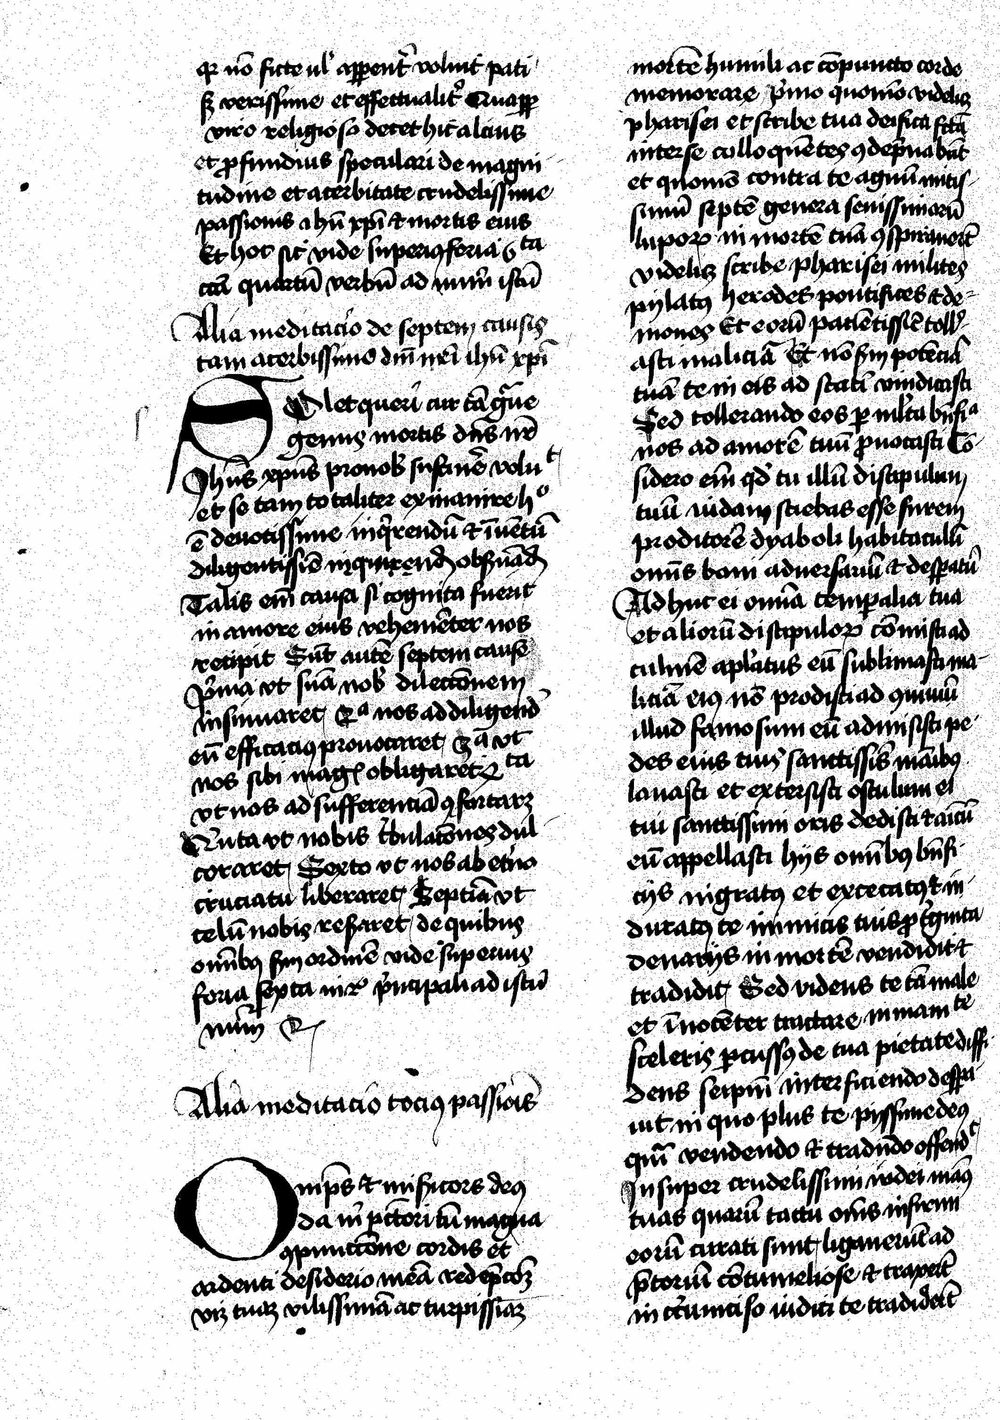 qr nō ficte ul' apparent' voluit pati
sꝫ verissime et effectualit' Quapp
viro religioso decet hic alcius
et ꝓfundius speculari de magni
tudine et acerbitate crudelissime
passionis ihū xp̄i & mortis eius
Et hoc sic vide superiꝰ feria 6ta
cc̄a quartū verbū ad nūm istū
Alia meditacio de septem causis
tam acerbissime dn̄i nr̄i ihū xp̄i
Solet queri cur tā gue
genus mortis dn̄s nr̄
Jhūs xp̄us pro nob' sustinē' volut
et se tam totaliter exinanire ho
ē devotissime inq̄rendū & īuētū
diligentissīe inquirend obsūad
Talis em̄ causa si cognita fuerit
in amore eius vehemēter nos
recipit Sūt autē septem cause
P'ma vt suā nob' dilectōnem
insinuaret 2a nos ad diligend
eū efficaciꝰ provocaret 3a vt
nos sibi mag' obligaret 4ta
vt nos ad sufferentiā ꝯfortarꝫ
Quīta vt nobis t'bulacōnes dul
coraret Sexto vt nos ab et'no
cruciatu liberaret Septiā vt
celū nobis resaret de quibus
omībꝰ scdm ordinē vide superius
feria sexta in p'ncipali ad istū
nūm
Alia meditacio tociꝰ passiōis
Omp̄s & mis'icors deꝰ
da m̄ pctōri cū magna
ꝯpunctōne cordis et
ardenti desiderio meā redēpcōꝫ
vꝫ tuaꝫ vilissimā ac turpissiāꝫ
mortē humili ac cōpuncto corde
memorare p'mo quomō videlicꝫ
pharisei et scribe tua deifica fctā
inter se colloquētes ꝯdep̄uabāt
et quomō contra te agnū mitis
simū septē genera seuissimorū
lupoꝝ in mortē tuā ꝯspirauerūt
videlicꝫ scribe pharisei milites
pylatꝰ herodes pontifices & de
mones Et eorū pacientissīe toll'
asti maliciā Et nō scdm potēciā
tuā te in eis ad statī vindicasti
Sed tollerando eos p̄ mlta bn̄fia
nos ad amorē tuū ꝓuocasti Cō
sidero em̄ qd' tu illū discipulum
tuū iudam sciebas esse furem
proditorē dyaboli habitaculū
omīs boni adversariū & desperatū
Ad huc ei omīa temporalia tua
et aliorū discipuloꝝ cōmisisti ad
culmē apl'atus eū sublimasti ma
liciā eiꝰ nō prodisti ad ꝯuiuiū
illud famosum eū admisisti pe
des eius tuis sanctissis manibꝰ
lavasti et extersisti osculum ei
tui sanctissimi oris dedisti & aīcū
eū appellasti hijs omībꝰ bn̄fi
cijs īngratꝰ et excecatꝰ & in
duratꝰ te inimicis tuis ꝓ t'ginta
denarijs in mortē vendidit &
tradidit Sed videns te tā male
et īnocēter tractare in mamte
sceleris pcussꝰ de tua pietate diffi
dens seipm̄ interficiendo despai
uit in quo plus te pijssime deꝰ
quam vendendo & tradendo offendt
Jnsuper crudelissimi iudei manꝰ
tuas quarū tactu omīs infirmi
eorū curati sunt ligauerūt ad
p̄toriū cōtumeliose & traxerūt
incircumciso iudici te tradiderūt